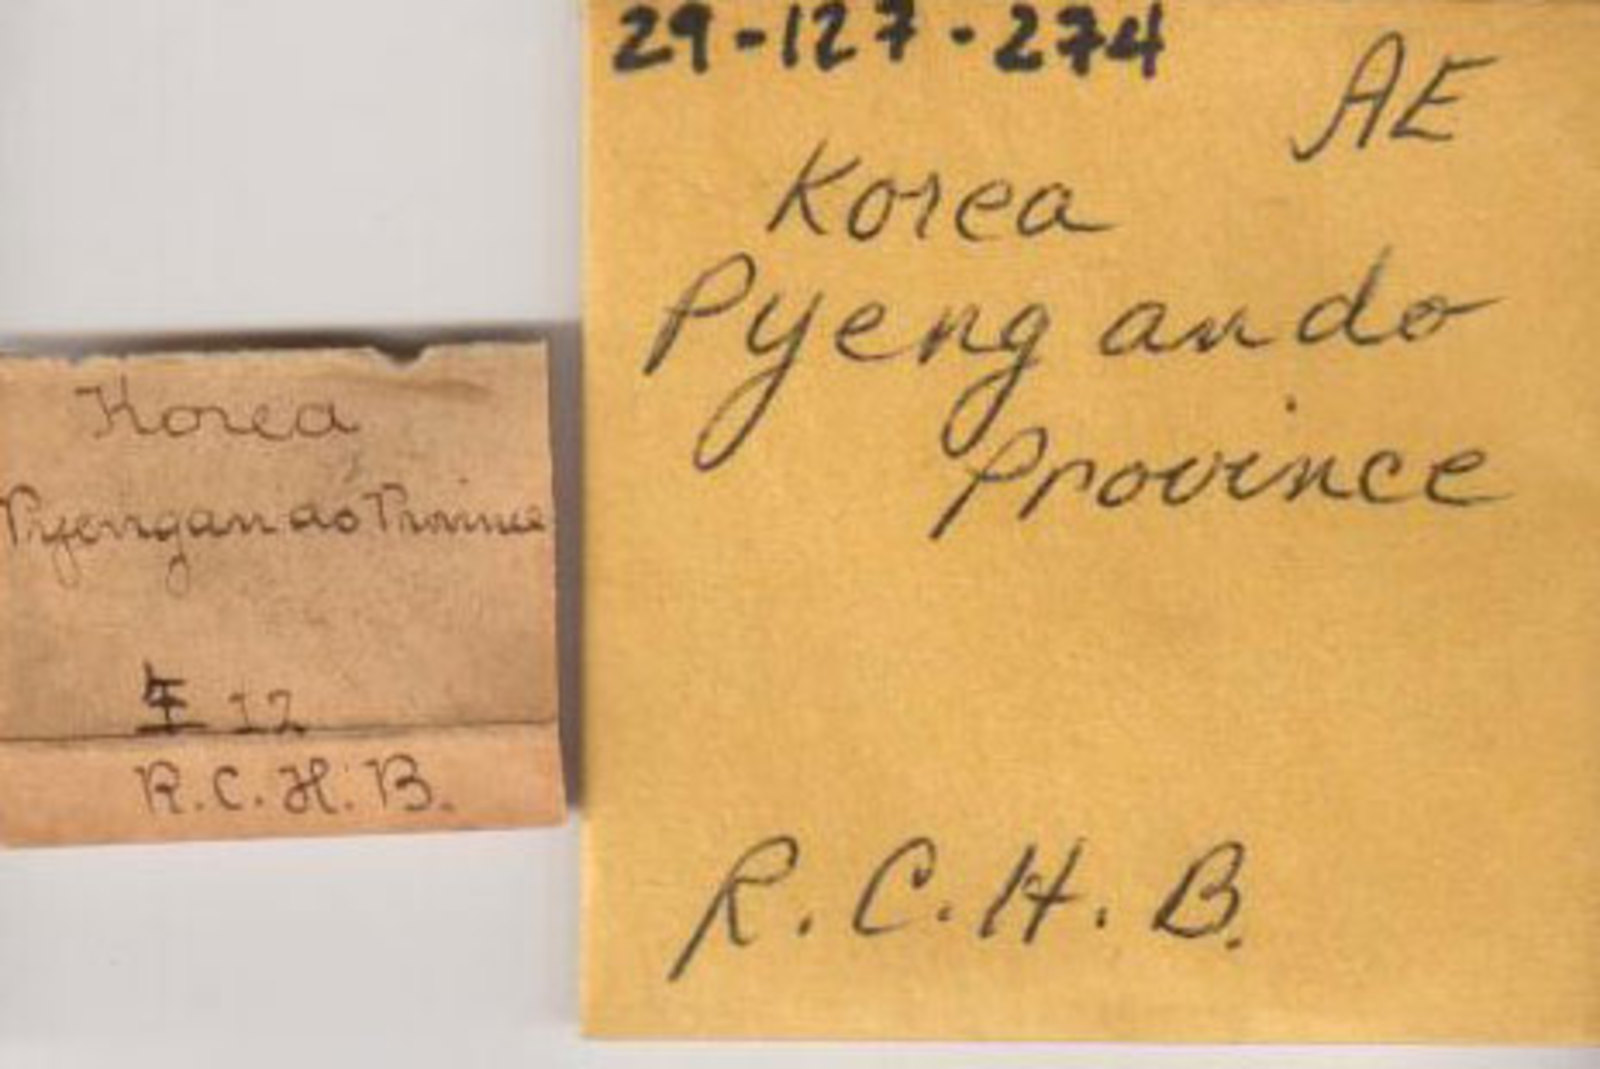 Korea
Pyengando Province
12
R.C.H.B.
29-127-274
AE
Korea
Pyeng an do
Province
R.C.H.B.